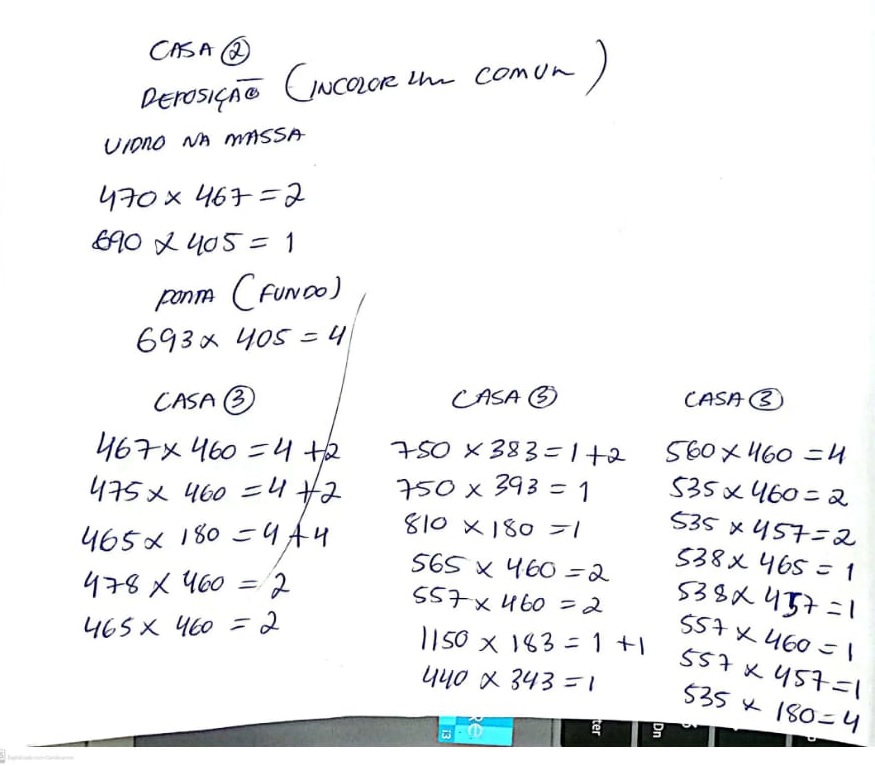 CASA ②
DEPOSIÇÃO (INCOLOR comum)
VIDRO NA MASSA
470 x 467 = 2
690 x 405 = 1
PORTA (FUNDO)
693 x 405 = 4
CASA ③
467 x 460 = 4 + 2
475 x 460 = 4 + 2
465 x 180 = 4 + 4
478 x 460 = 2
465 x 460 = 2
CASA ③
750 x 383 = 1 + 2
750 x 393 = 1
810 x 180 = 1
565 x 460 = 2
557 x 460 = 2
1150 x 183 = 1 + 1
440 x 343 = 1
CASA ③
560 x 460 = 4
535 x 460 = 2
535 x 457 = 2
538 x 465 = 1
538 x 457 = 1
557 x 460 = 1
557 x 457 = 1
535 x 180 = 4
re
i3
ter
Dn